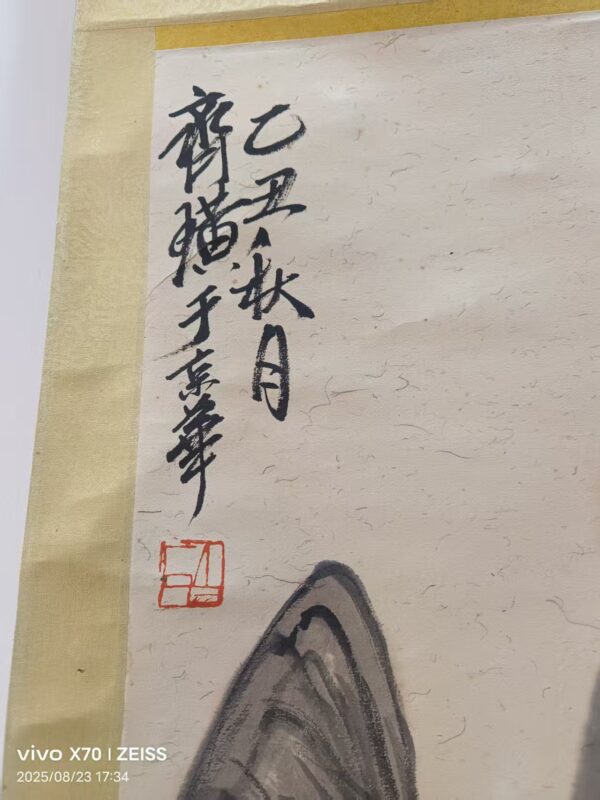 乙丑秋月
齊璜于京華
vivo X70 | ZEISS
2025/08/23 17:34